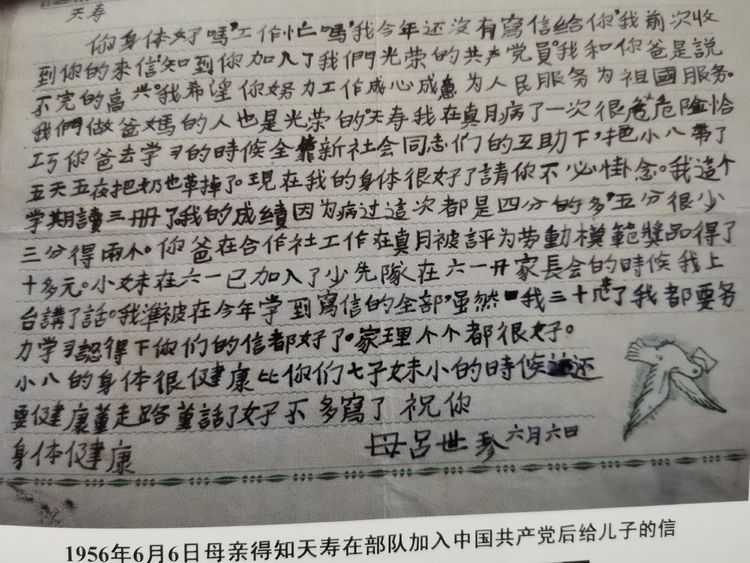 天寿
你身体好嗎'工作忙嗎'我今年还没有寫信给你'我前次收
到你的來信'知到你加入了我們光荣的共产党員'我和你爸是説
不完的高兴'我希望你努力工作成心成意为人民服务为祖國服务。
我們做爸媽的人也是光荣的'天寿我在真月病了一次很危危险恰
巧你爸去学习的時候全靠新社会同志们的互助下'把小八帶了
五天五夜把奶也革掉了。現在我的身体很好了請你不必掛念。我這个
学期讀三册了我的成績因为病过這次都是四分的多'五分很少
三分得兩个。你爸在合作社工作在真月被評为劳動模範獎品得了
十多元。小妹在六一已加入了少先隊在六一开家長会的時候我上
台講了話。我準被在今年学到寫信的全部'虽然我三十老了我都要努
力学习認得下你们的信都好了。家理个个都很好。
小八的身体很健康比你们七子妹小的時候还
要健康董走路董話了好不多寫了 祝你
身体健康
母呂世珍 六月六日
1956年6月6日母亲得知天寿在部队加入中国共产党后给儿子的信